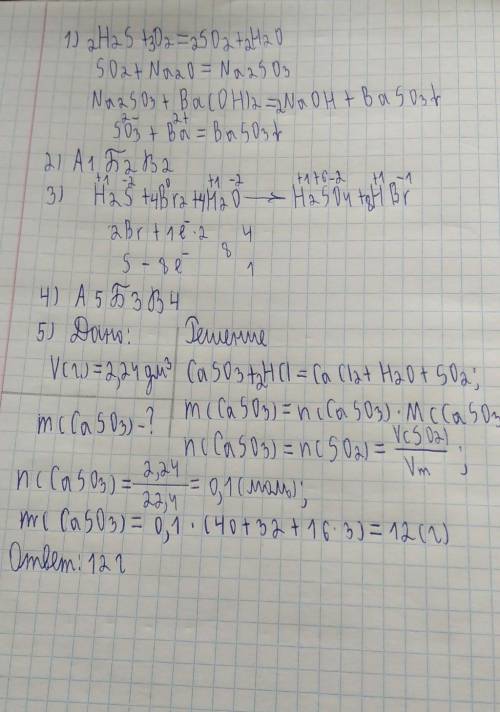 1) 2H2S + 3O2 = 2SO2 + 2H2O
SO2 + Na2O = Na2SO3
Na2SO3 + Ba(OH)2 = 2NaOH + BaSO3↓
SO3²⁻ + Ba²⁺ = BaSO3↓
2) А1, Б2 В2
+1 -2 0 +1 -2 +1 +6 -2 +1 -1
3) H2S + 4Br2 + 4H2O → H2SO4 + 8HBr
2Br + 1e⁻·2 8 4
S - 8e⁻ 1
4) А5 Б3 В4
5) Дано: Решение
V(г) = 2,24 дм³ CaSO3 + 2HCl = CaCl2 + H2O + SO2;
m(CaSO3) = n(CaSO3) · M(CaSO3
m(CaSO3) - ?
n(CaSO3) = n(SO2) = V(SO2) / Vm ;
n(CaSO3) = 2,24 / 22,4 = 0,1 (моль);
m(CaSO3) = 0,1 · (40 + 32 + 16 · 3) = 12 (г)
Ответ: 12 г